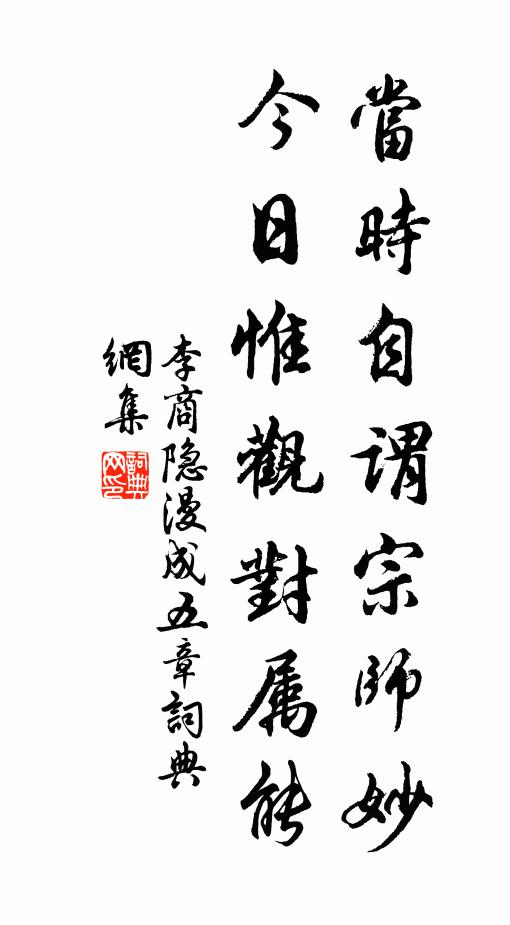 當時自谓宗師妙
今日惟觀對属能
李商隐漫成五章詞典
網集
詞典网印